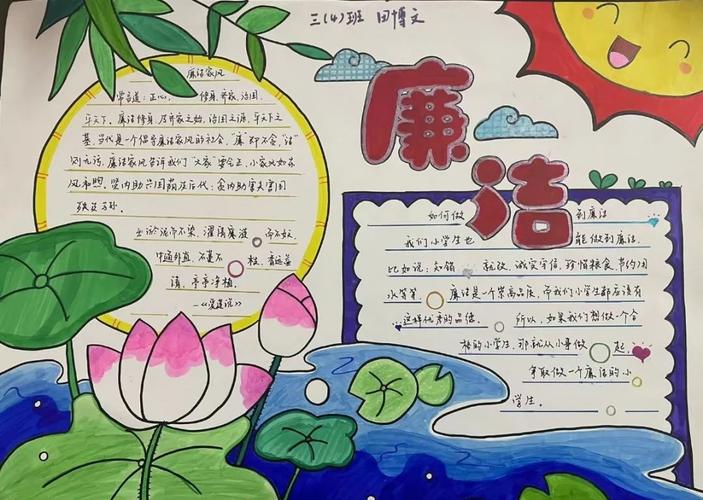 三(4)班 田博文
廉洁
廉洁家风
常言道:正心, 修身,齐家,治国,
平天下。廉洁修身,乃齐家之始,治国之源,平天下之
基。当代是一个倡导廉洁家风的社会,"廉"即不贪,"洁"
则无污。廉洁家风告诉我们"大家"要会正,小家风如春
风和煦。贤内助兴国荫庇后代;贪内助害夫害国
殃及子孙。
出淤泥而不染,濯清廉涟 而不妖
中通外直,不蔓不 枝,香远益
清,亭亭净植。
—《爱莲说》
如何做 到廉洁
我们小学生也 能做到廉洁。
比如说:知错 就改,诚实守信,珍惜粮食,节约用
水等等。 廉洁是一个崇高品质,而我们小学生都应该有
这样优秀的品德。 所以,如果我们想做一个合
格的小学生,那就从小事做 起,
争取做一个廉洁的小
学生。